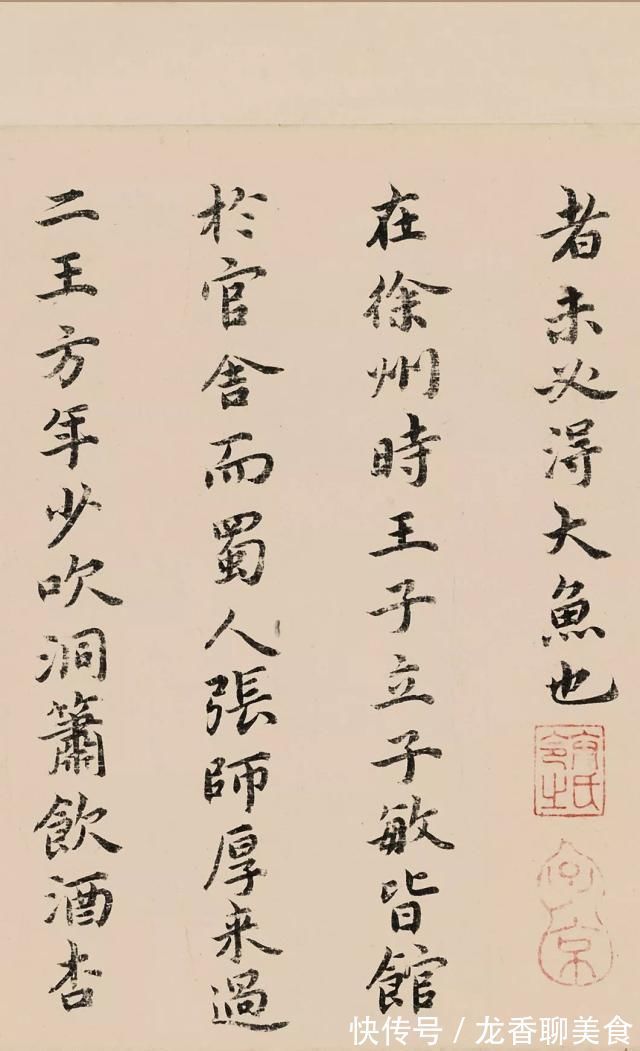 者未必得大魚也
在徐州時王子立子敏皆館
於官舍而蜀人張師厚来過
二王方年少吹洞簫飲酒杏
快传号／龙香聊美食